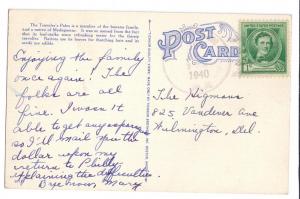 The Traveler's Palm is a member of the banana family,
and a native of Madagascar. It was so named from the fact
that its leaf-stalks store refreshing water for the thirsty
traveller. Natives use its leaves for thatching huts and its
seeds are edible.
POST CARD
1940
Enjoying the family
once again! The
folks are all
fine. I won't
able to get any
so I'll mail you the
dollar upon my
return to Philly
explaining the difficulties
Mary
The Higmans
825 Vandever Ave
Wilmington, Del.